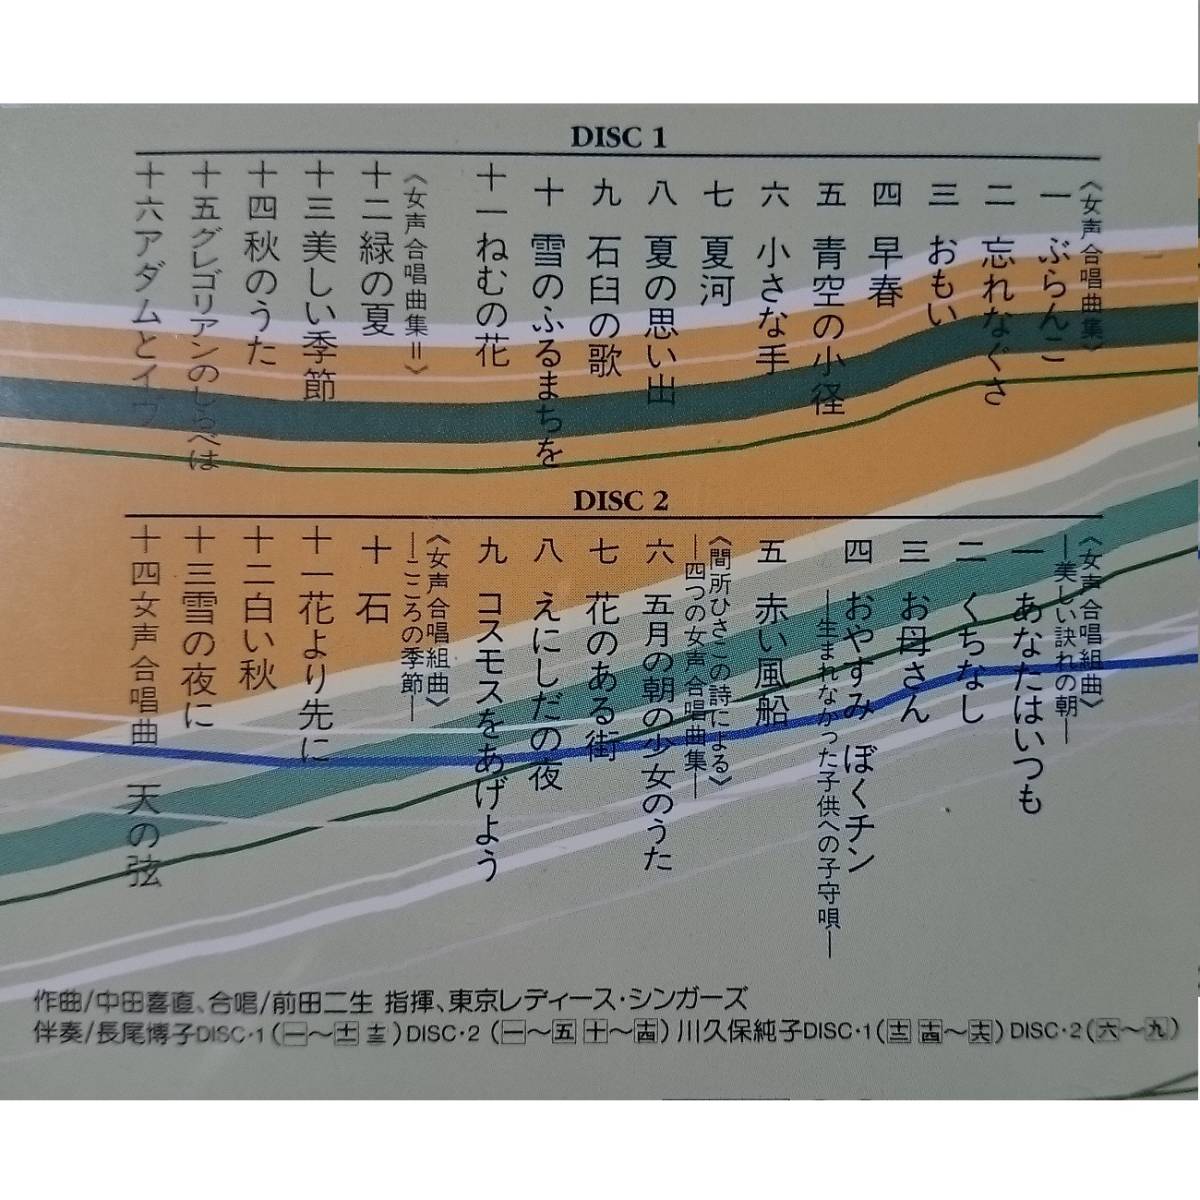 DISC 1
《女声合唱曲集》
一 ぶらんこ
二 忘れなぐさ
三 おもい
四 早春
五 青空の小径
六 小さな手
七 夏河
八 夏の思い出
九 石臼の歌
十 雪のふるまちを
十一 ねむの花
《女声合唱曲集II》
十二 緑の夏
十三 美しい季節
十四 秋のうた
十五 グレゴリアンのしらべは
十六 アダムとイヴ
DISC 2
《女声合唱組曲》
―美しい訣れの朝―
一 あなたはいつも
二 くちなし
三 お母さん
四 おやすみ ぼくチン
―生まれなかった子供への子守唄―
五 赤い風船
《間所ひさこの詩による》
―四つの女声合唱曲集―
六 五月の朝の少女のうた
七 花のある街
八 えにしだの夜
九 コスモスをあげよう
《女声合唱組曲》
―こころの季節―
十 石
十一 花より先に
十二 白い秋
十三 雪の夜に
十四 女声合唱曲 天の弦
作曲/中田喜直、合唱/前田二生 指揮、東京レディース・シンガーズ
伴奏/長尾博子DISC・1(一～十一 十三)DISC・2(一～五 十～十四)川久保純子DISC・1(十二 十四～十六)DISC・2(六～九)